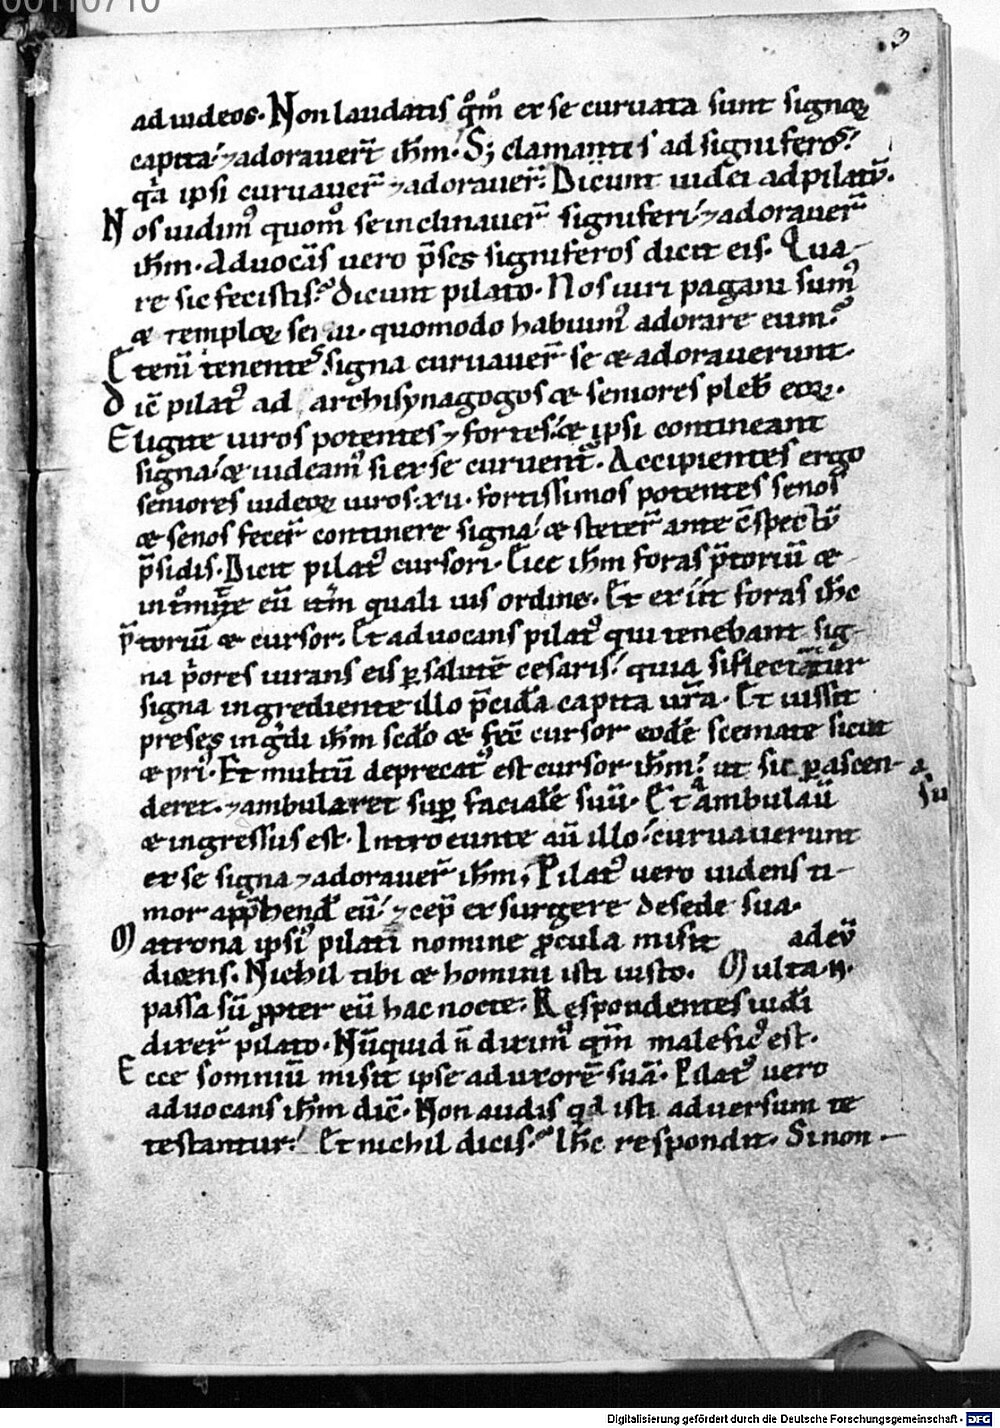 00110710
3
ad iudeos. Non laudatis qm̊ ex se curuata sunt signoꝝ
capita: ⁊ adorauer̄t ih̄m. Sꝫ clamantes ad signiferos:
qͣ ipsi curuauer̄ ⁊ adorauer̄. Dicunt iudei ad pilatū.
Nos uidimꝰ quom̊ se inclinauer̄ signiferi: ⁊ adorauer̄
ih̄m. Aduocās uero p̄ses signiferos dicit eis. Qua-
re sic fecistis? Dicunt pilato. Nos uiri pagani sumꝰ
& temploꝝ serui. quomodo habuimꝰ adorare eum?
Etenī tenentes signa curuauer̄ se & adorauerunt.
Dic̄ pilatꝰ ad archisynagogos & seniores pleb̄ eoꝝ.
Eligite uiros potentes ⁊ fortes: & ipsi contineant
signa: & uideamꝰ si ex se curuent̄. Accipientes ergo
seniores iudeoꝝ uiros .xii. fortissimos potentes senos
& senos fecer̄ continere signa: & steter̄ ante c̄spectū
p̄sidis. Dicit pilatꝰ cursori. Eice ih̄m foras p̄toriū &
eū itm̄ quali uis ordine. Et exiit foras ih̄c
p̄toriū & cursor. Et aduocans pilatꝰ qui tenebant sig-
na p̄ores iurans eis ꝑ salutē cesaris: quia si flectāt̄ur
signa ingrediente illo p̄cidā capita ur̄a. Et iussit
preses ingͥdi ih̄m scdo & fec̄ cursor eodē scemate sicut
& priꝰ. Et multū deprecatꝰ est cursor ih̄m: ut sic ꝑ ascen-
deret. ⁊ ambularet suꝑ facialē suū. Et ambulauͥ
su
& ingressus est. Introeunte aū illo: curuauerunt
ex se signa ⁊ adorauer̄ ih̄m. Pilatꝰ uero uidens ti-
mor app̄hend̄ eū: ⁊ cep̄ exsurgere de sede sua.
Matrona ipsiꝰ pilati nomine ꝓcula misit ad eū
dicens. Nichil tibi & homini isti iusto. Multa .n.
passa sū ꝓpter eū hac nocte. Respondentes iudei
dixer̄ pilato. Nūquid n̄ diximꝰ qm̄ maleficꝰ est.
Ecce somniū misit ipse ad uxorē suā. Pilatꝰ uero
aduocans ih̄m dic̄. Non audis qͣ isti aduersum te
testantur: Et nichil dicis? Ih̄c respondit. Si non
Digitalisierung gefördert durch die Deutsche Forschungsgemeinschaft - DFG